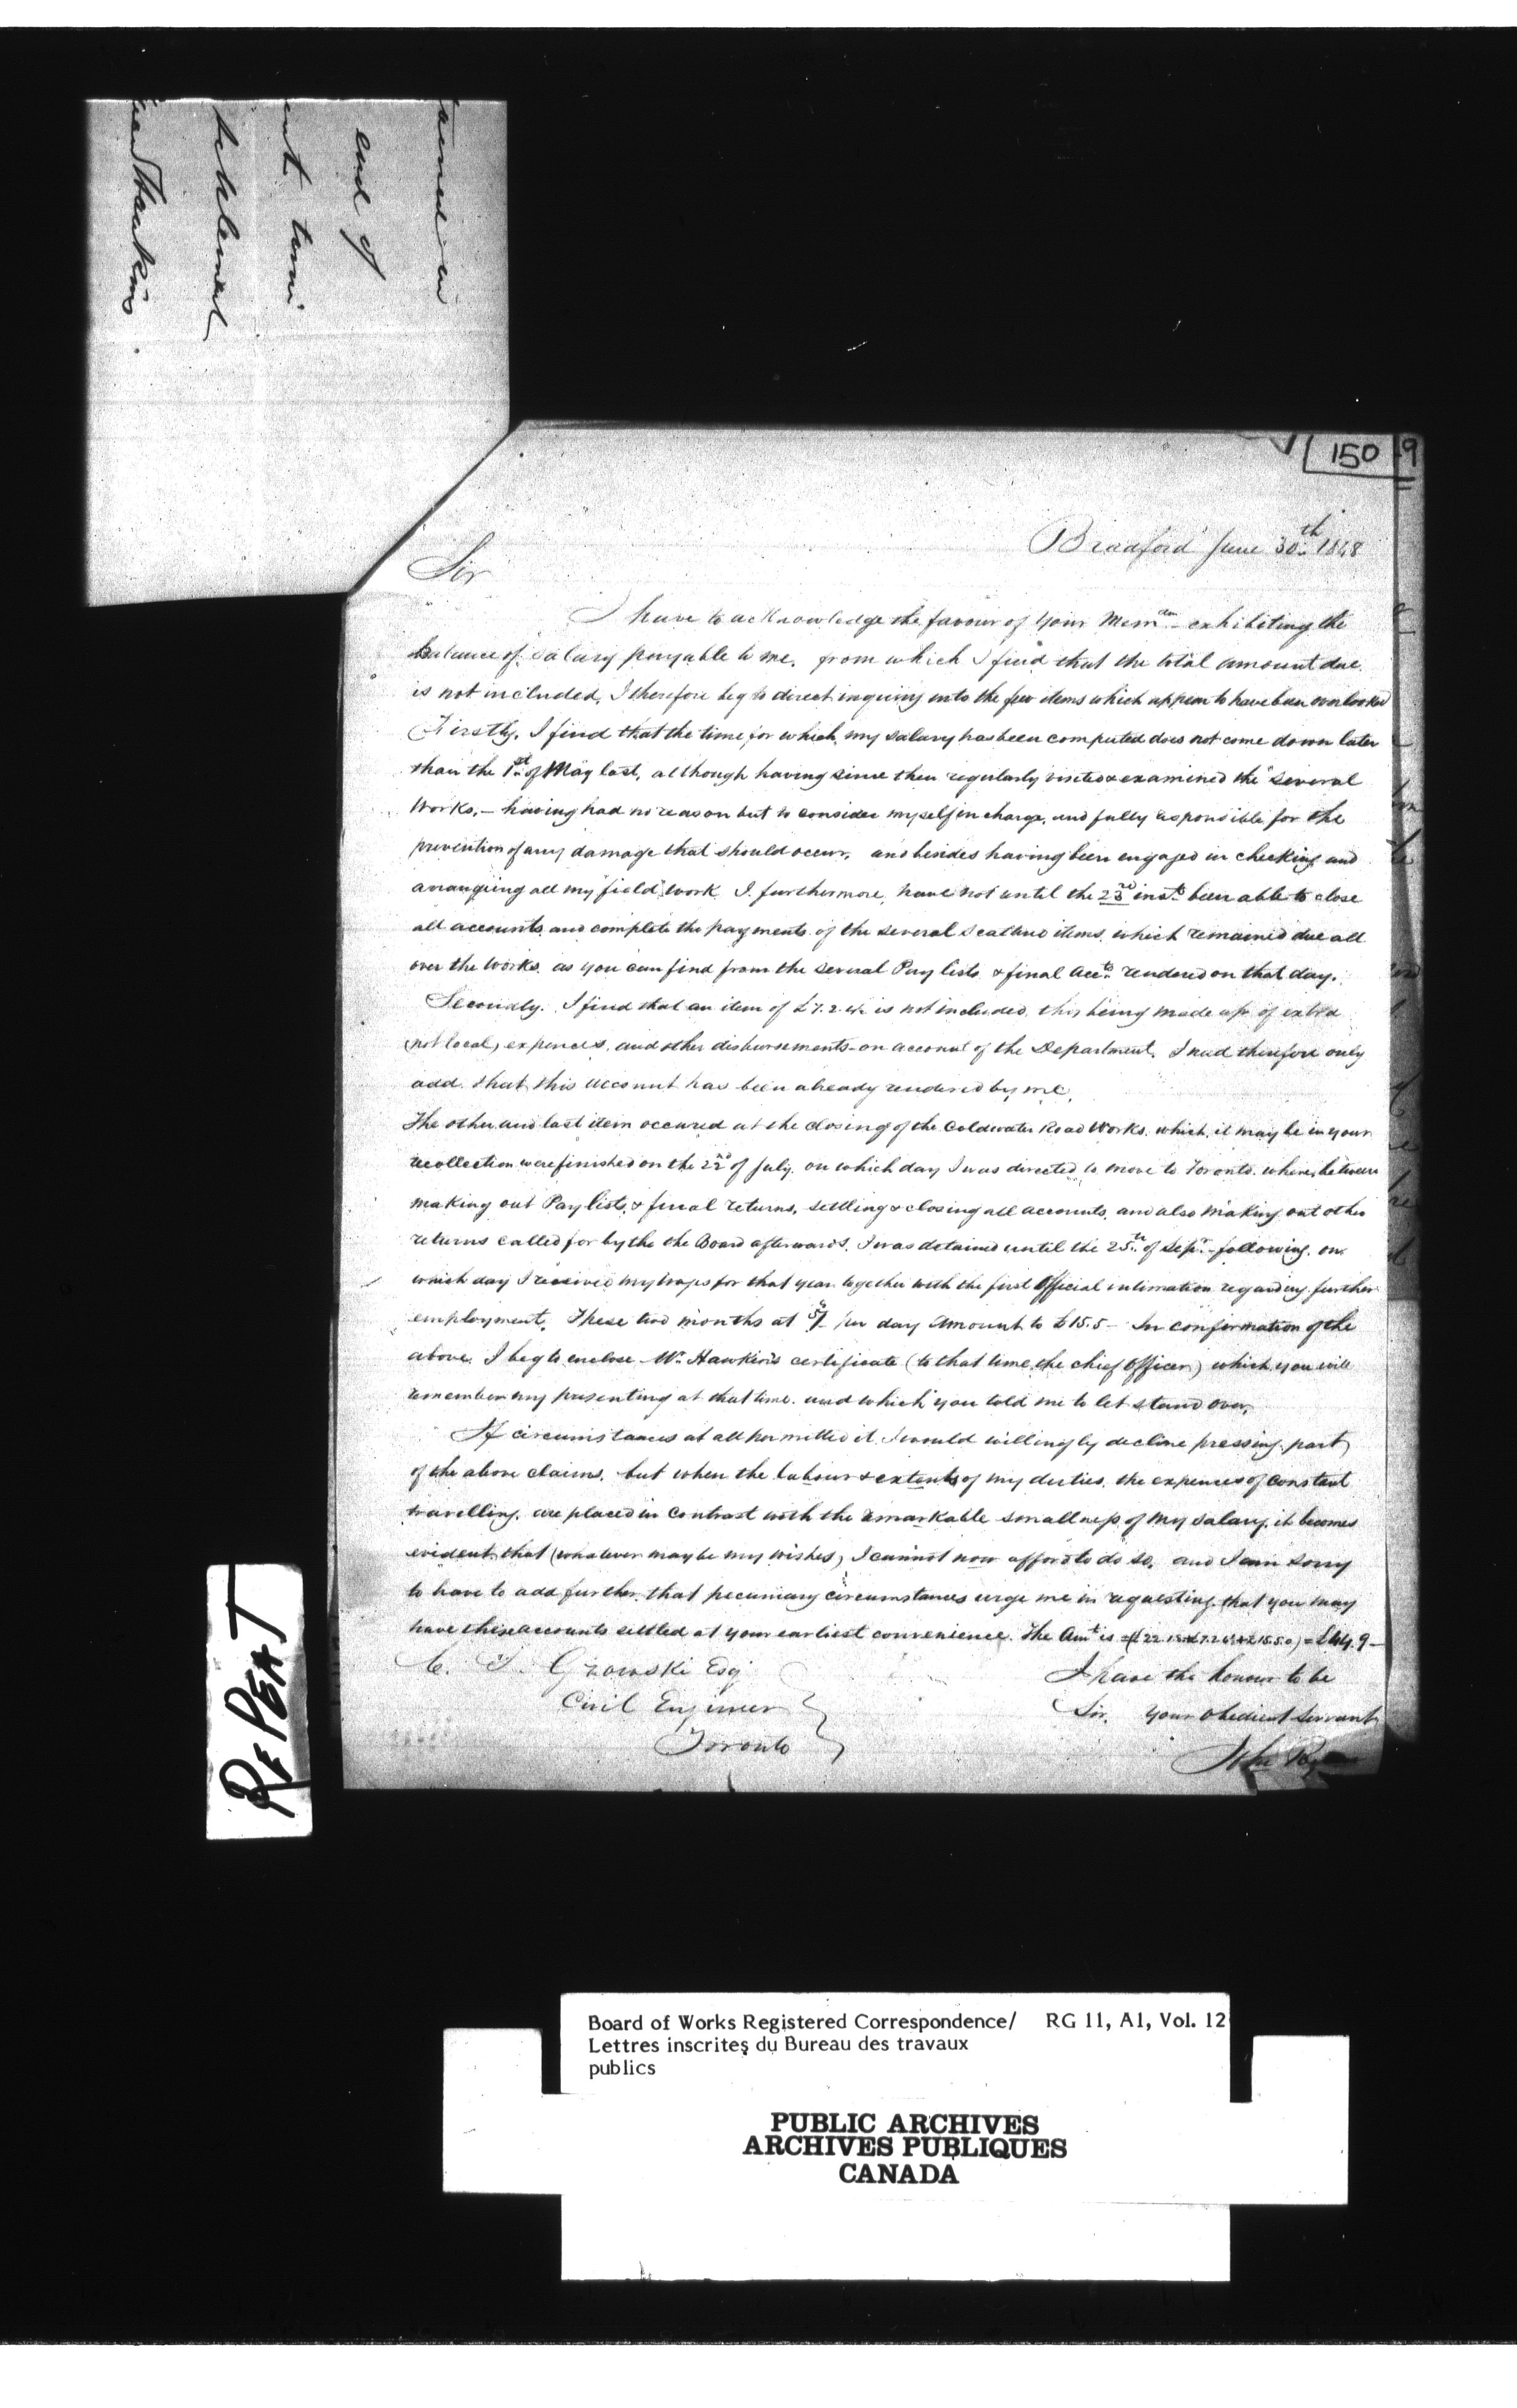 end of
150 9
Bradford June 30th 1848
Sir
I have to acknowledge the favour of your Memdm exhibiting the
Balance of Salary payable to me, from which I find that the total amount due
is not included, I therefore beg to direct inquiry into the few items which appear to have been overlooked
Firstly, I find that the time for which my salary has been computed does not come down later
than the 1st of May last, although having since then regularly visited & examined the several
Works, – having had no reason but to consider myself in charge, and fully responsible for the
prevention of any damage that should occur, and besides having been engaged in checking and
arranging all my field work I furthermore, have not until the 23rd inst. been able to close
all accounts and complete the payments of the several scattered items, which remained due all
over the Works, as you can find from the several Pay lists & final Accts. rendered on that day.
Secondly. I find that an item of £7.2. is not included, this being made up of extra
(not local) expences, and other disbursements on account of the Department, I need therefore only
add that this account has been already rendered by me,
The other and last item occured at the closing of the Coldwater Road Works, which, it may be in your
recollection were finished on the 22nd of July, on which day I was directed to move to Toronto, where, between
making out Pay lists, & final returns, settling & closing all accounts, and also making out other
returns called for by the the Board afterwards, I was detained until the 25th of Sepr. following, on
which day I received my wages for that year together with the first Official intimation regarding further
employment, These two months at 5/- per day Amount to £15.5 – In confirmation of the
above, I beg to enclose Mr. Hawkins certificate (to that time, the chief Officer) which you will
remember my presenting at that time, and which you told me to let stand over,
If circumstances at all permitted it, I would willingly decline pressing part
of the above claims, but when the labour & extent of my duties, the expences of constant
travelling, are placed in Contrast with the remarkable smallness of my salary, it becomes
evident, that (whatever may be my wishes) I cannot now afford to do so, and I am sorry
to have to add further, that pecuniary circumstances urge me in requesting, that you may
have these accounts settled at your earliest convenience. The Amt. is = £44.9 –
C. S. Gzowski Esq
Civil Engineer
Toronto
I have the honour to be
Sir, Your Obedient Servant
John
REPEAT
Board of Works Registered Correspondence/ RG 11, A1, Vol. 12
Lettres inscrites du Bureau des travaux
publics
PUBLIC ARCHIVES
ARCHIVES PUBLIQUES
CANADA